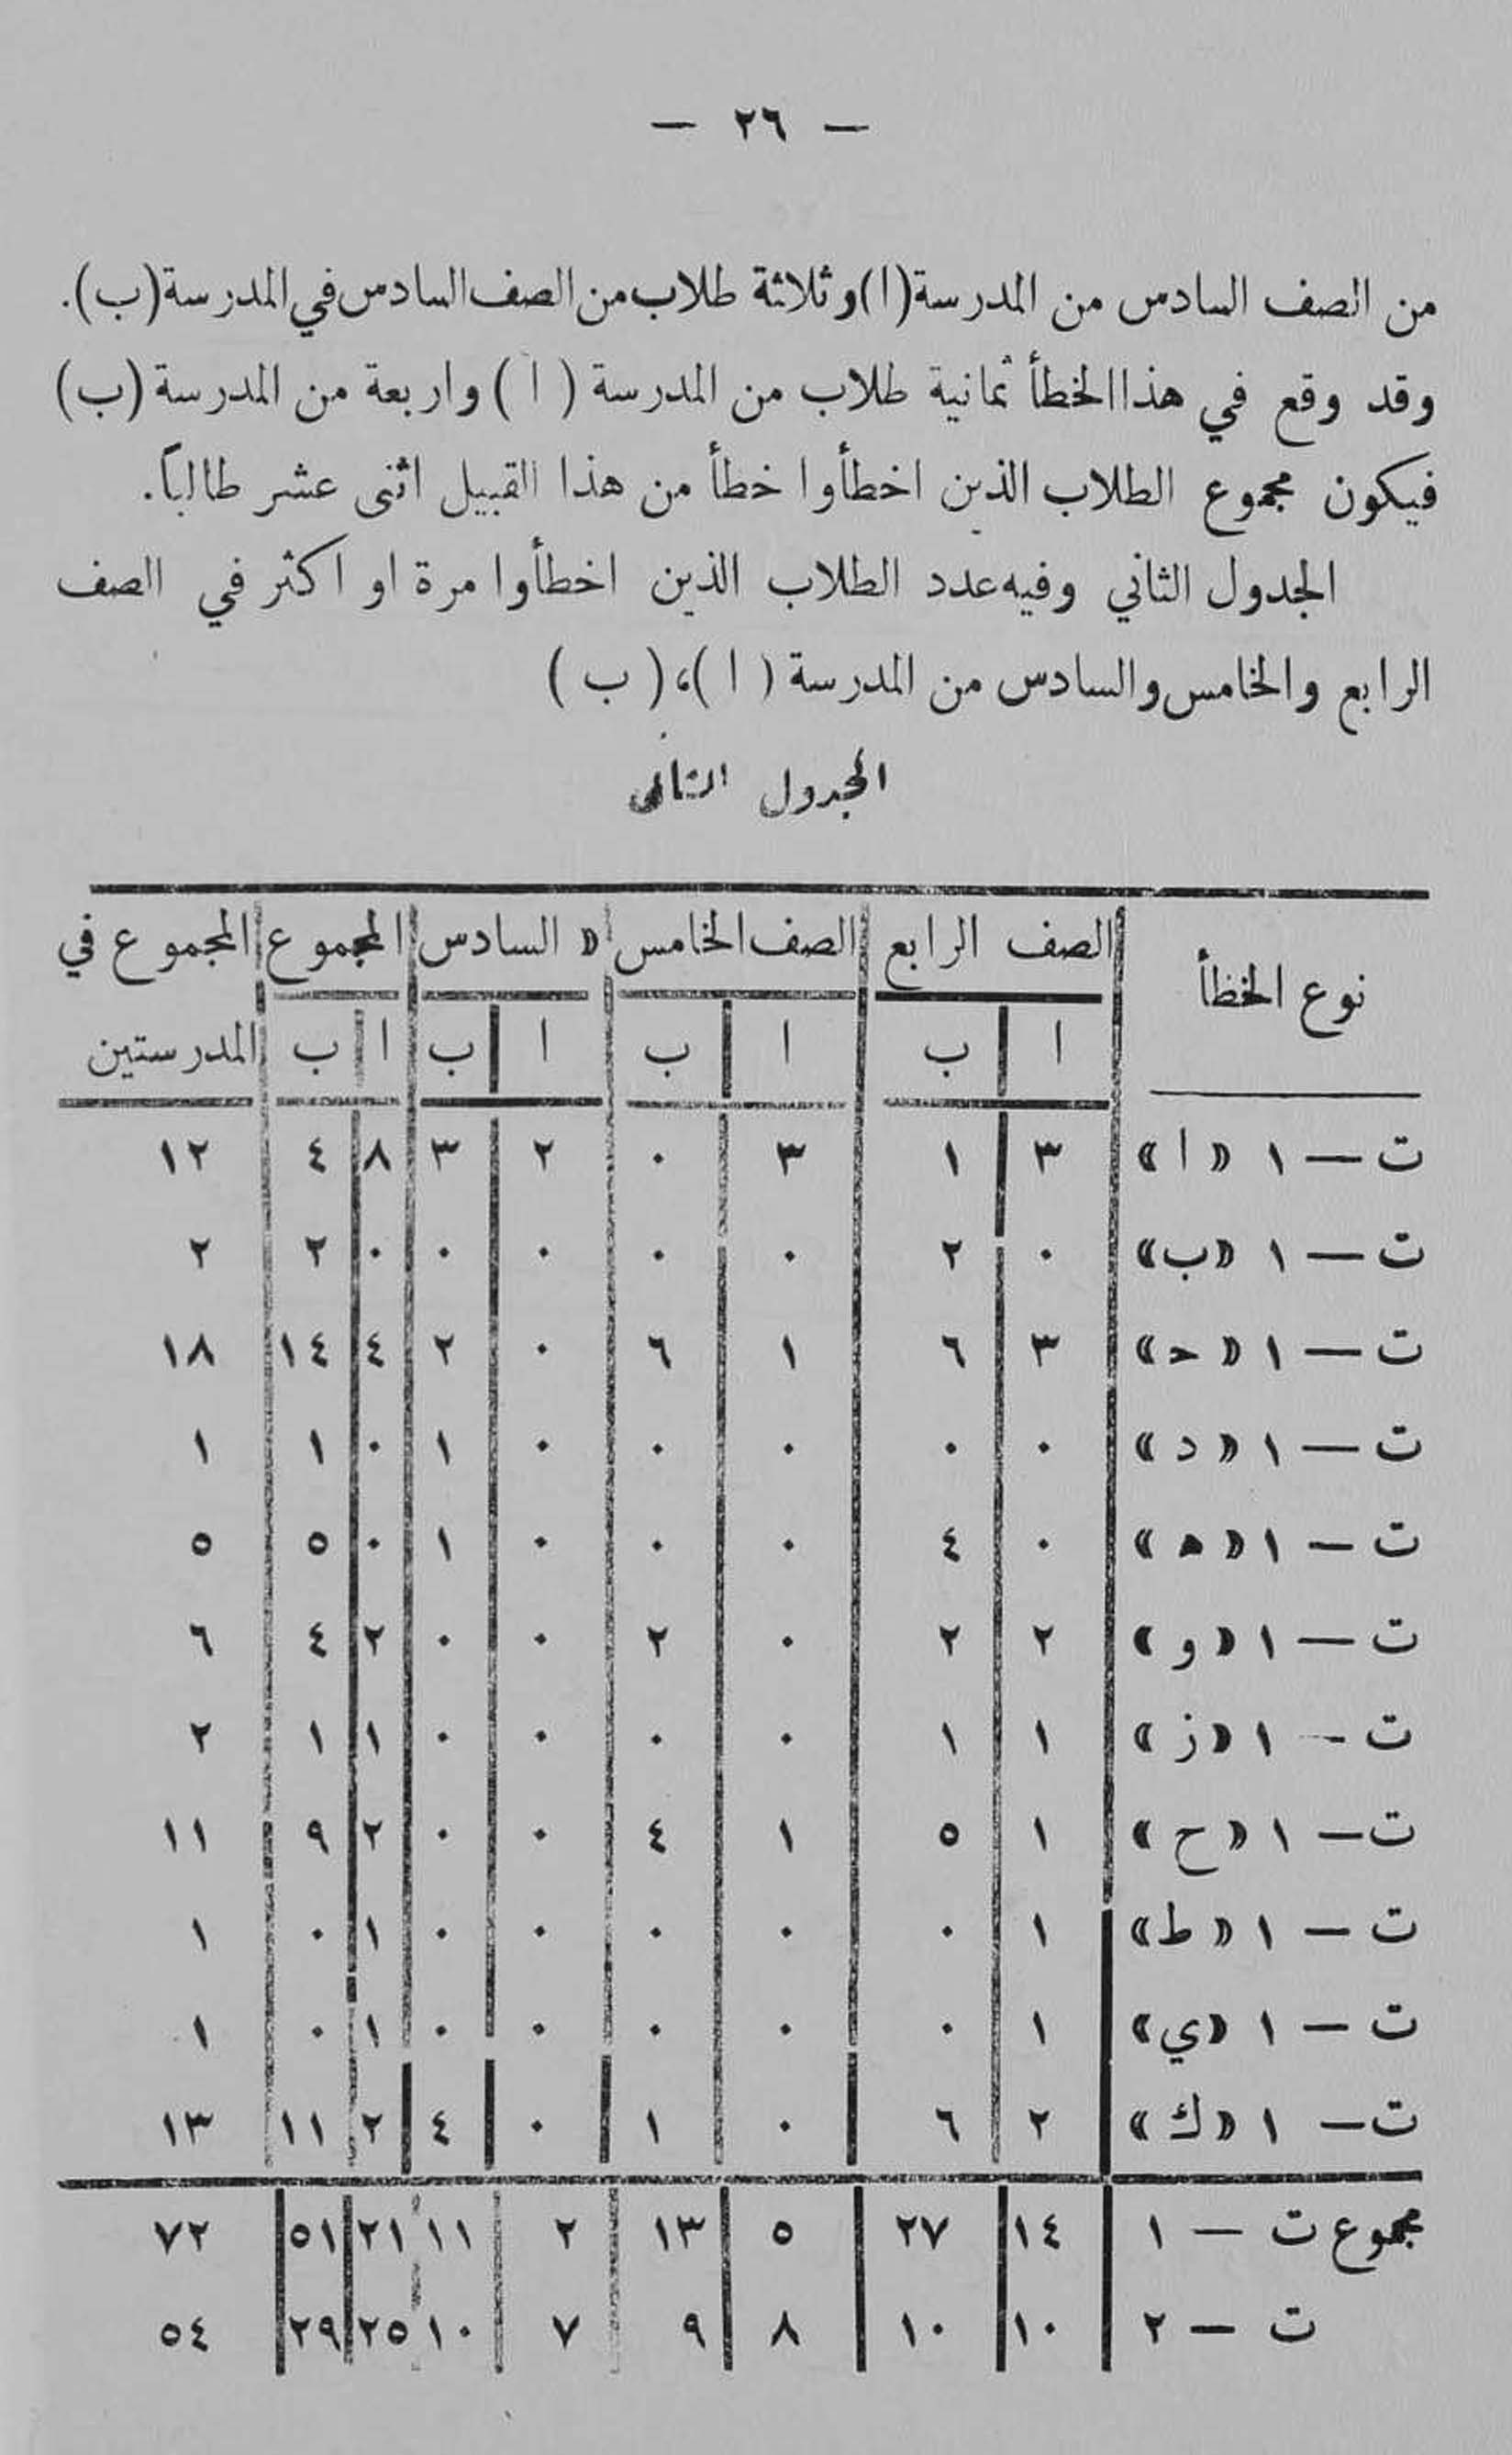 — ٢٦ —
من الصف السادس من المدرسة (ا) وثلاثة طلاب من الصف السادس في المدرسة (ب).
وقد وقع في هذا الخطأ ثمانية طلاب من المدرسة ( ا ) واربعة من المدرسة (ب)
فيكون مجموع الطلاب الذين اخطأوا خطأ من هذا القبيل اثنى عشر طالباً.
الجدول الثاني وفيه عدد الطلاب الذين اخطأوا مرة او اكثر في الصف
الرابع والخامس والسادس من المدرسة ( ا )، ( ب )
الجدول الثاني
نوع الخطأ الصف الرابع الصف الخامس « السادس المجموع المجموع في
ا ب ا ب ا ب ا ب المدرستين
ت — ١ « ا » ٣ ١ ٣ ٠ ٢ ٣ ٨ ٤ ١٢
ت — ١ «ب» ٠ ٢ ٠ ٠ ٠ ٠ ٠ ٢ ٢
ت — ١ « حـ » ٣ ٦ ١ ٦ ٠ ٢ ٤ ١٤ ١٨
ت — ١ « د » ٠ ٠ ٠ ٠ ٠ ١ ٠ ١ ١
ت — ١ « ه » ٠ ٤ ٠ ٠ ٠ ١ ٠ ٥ ٥
ت — ١ « و » ٢ ٢ ٠ ٢ ٠ ٠ ٢ ٤ ٦
ت — ١ « ز » ١ ١ ٠ ٠ ٠ ٠ ١ ١ ٢
ت — ١ « ح » ١ ٥ ١ ٤ ٠ ٠ ٢ ٩ ١١
ت — ١ « ط » ١ ٠ ٠ ٠ ٠ ٠ ١ ٠ ١
ت — ١ «ي» ١ ٠ ٠ ٠ ٠ ٠ ١ ٠ ١
ت — ١ « ك » ٢ ٦ ٠ ١ ٠ ٤ ٢ ١١ ١٣
مجموع ت — ١ ١٤ ٢٧ ٥ ١٣ ٢ ١١ ٢١ ٥١ ٧٢
ت — ٢ ١٠ ١٠ ٨ ٩ ٧ ١٠ ٢٥ ٢٩ ٥٤